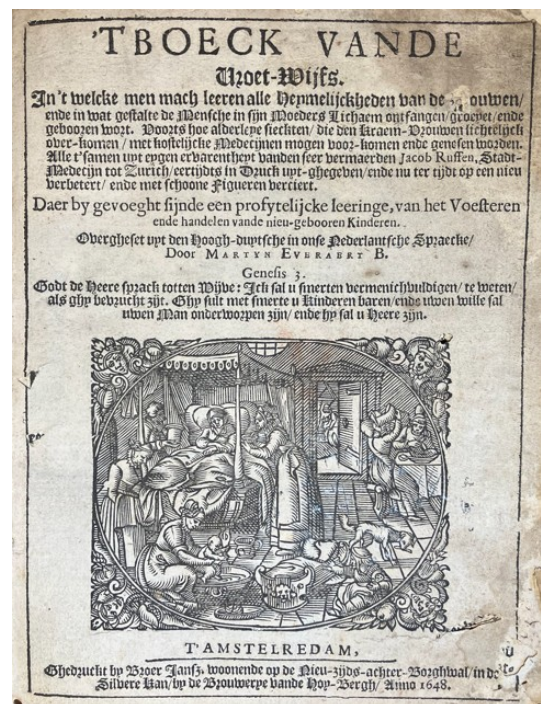 'TBOECK VANDE
Vroet-Wijfs.
In't welcke men mach leeren alle Heymelijckheden van de ouwen/
ende in wat gestalte de Mensche in sijn Moeders Lichaem ontfangen/groeyet/ende
gebooren wort. Voorts hoe alderleye sieckten/die den Kraem-Vrouwen lichtelijck
over-komen/met kostelijcke Medecijnen mogen voor-komen ende genesen worden.
Alle t'samen uyt eygen ervarentheyt vanden seer vermaerden Jacob Ruffen, Stadt-
Medecijn tot Zurich/eertijdts in Druck uyt-ghegeven/ende nu ter tijdt op een nieu
verbetert/ende met schoone Figueren verciert.
Daer by gevoeght sijnde een profytelijcke leeringe, van het Voesteren
ende handelen vande nieu-gebooren Kinderen.
Overgheset uyt den Hoogh-duytsche in onse Nederlantsche Spraecke/
Door MARTYN EVERAERT B.
Genesis 3.
Godt de Heere sprack totten Wijve: Ick sal u smerten vermenichvuldigen/te weten/
als ghy bevrucht zijt. Ghy sult met smerte u Kinderen baren/ende uwen wille sal
uwen Man onderworpen zijn/ende hy sal u Heere zijn.
T'AMSTELREDAM,
Ghedruckt by Broer Jansz. woonende op de Nieu-zijds-achter-Borghwal/in de
Silvere Kan/by de Brouwerye vande Hoy-Bergh/Anno 1648.